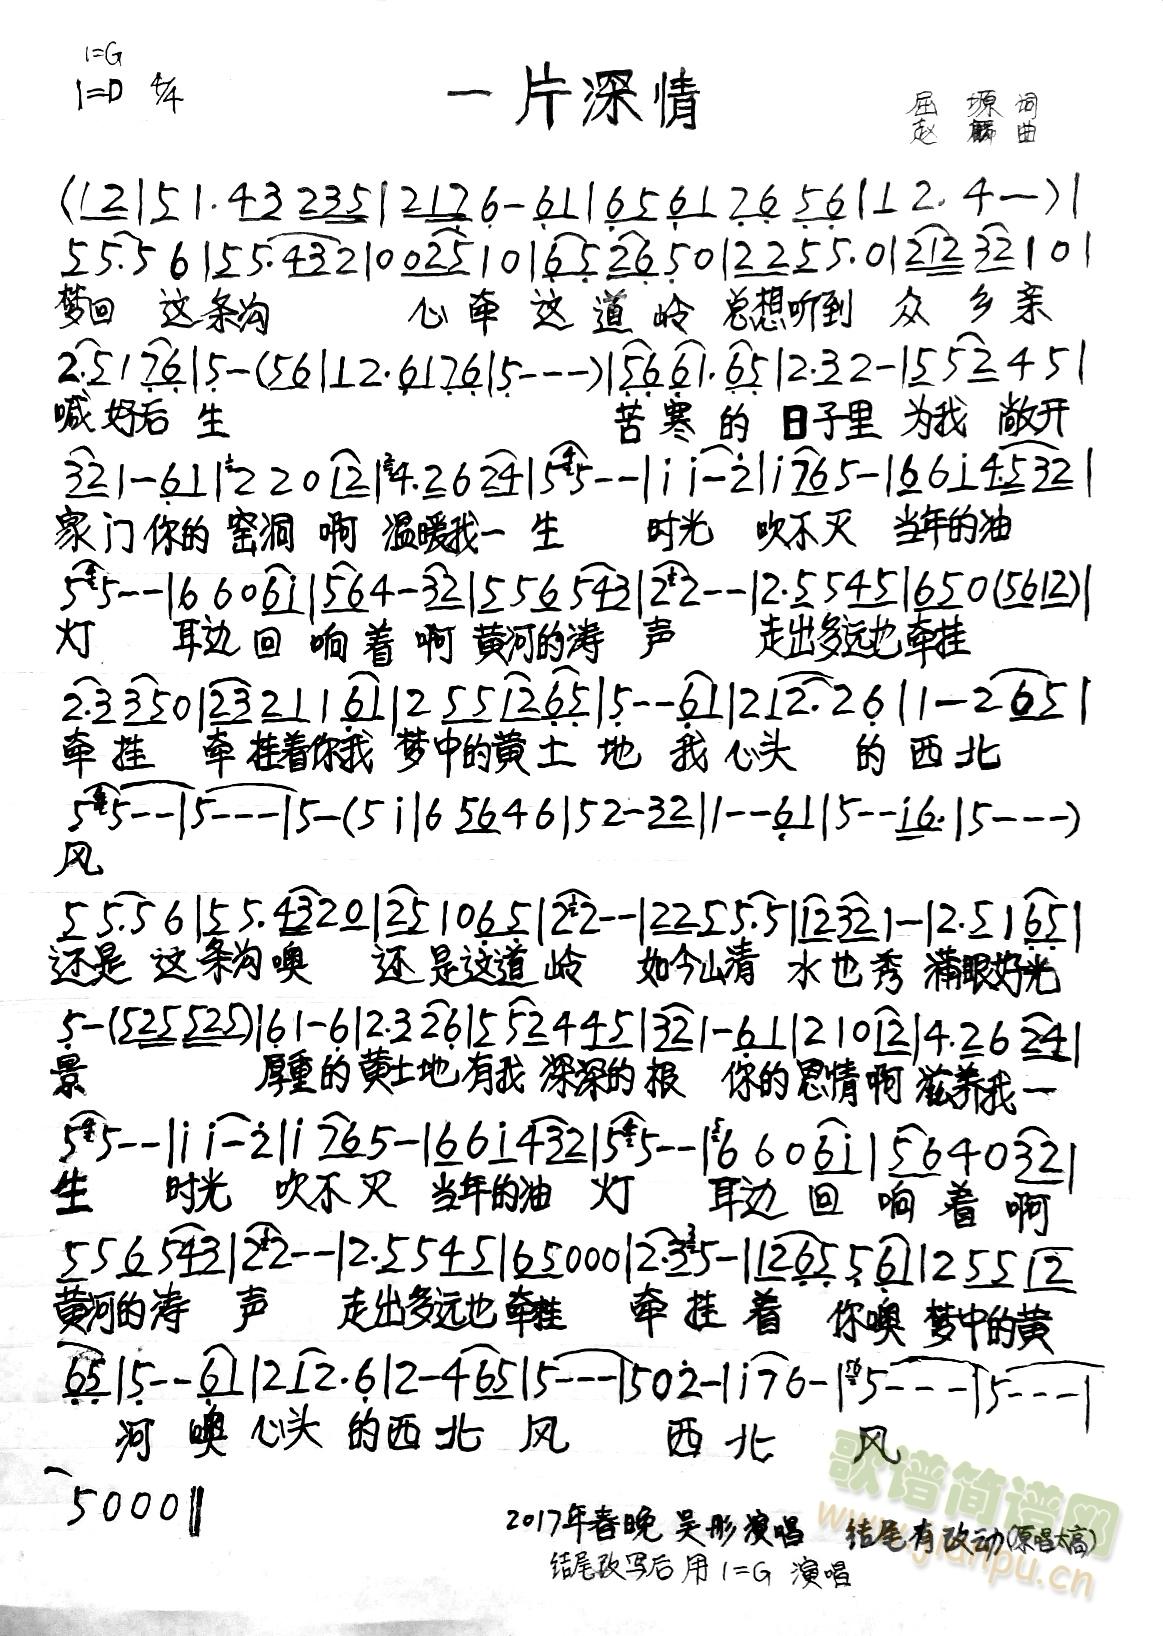 1=G
1=D 4/4
一片深情
屈塬 词
赵麟 曲
(12|51.43 235|2176-61|6561 76 56|12.4--)|
55.56|55.432|002510|652650|2255.0|2123210|
梦回 这条沟 心牵 这道岭 总想听到 众乡亲
2.5176|5-(56|12.6176|5---)|5661.65|2.32-|552245|
喊好后生 苦寒的日子里 为我敞开
321-61|22012|4.2624|55--|ii-2|i765-|66i4.532|
家门你的窑洞 啊 温暖我一生 时光 吹不灭 当年的油
55--|6606i|564-32|556543|22--|2.5545|650(5612)|
灯 耳边回响着啊 黄河的涛声 走出多远也牵挂
2.3350|2321161|2551265|5--61|212.26|1-265|
牵挂 牵挂着你我 梦中的黄土地 我心头 的西北
55--|5---|5-(5i|65646|52-32|1--61|5--i6.|5---)
风
55.56|55.4320|251065|22--|2255.5|12321-|2.5165|
还是 这条沟噢 还是这道岭 如今山清水也秀 满眼好光
5-(525525)|61-6|2.326|552445|321-61|21012|4.2624|
景 厚重的黄土地有我深深的报 你的恩情啊滋养我一
55--|ii-2|i765-|66i432|55--|6606i|564032|
生 时光 吹不灭 当年的油灯 耳边回响着啊
556543|22--|2.5545|65000|2.35-|1265561|25512
黄河的涛声 走出多远也牵挂 牵挂着 你噢梦中的黄
65|5--61|212.6|2-465|5---|502-|i76-|5---|5---|
河 噢心头 的西北风 西北 风
5000‖
2017年春晚 吴彤演唱 结尾有改动(原唱太高)
结尾改写后用1=G 演唱
歌谱简谱网
www.jianpu.cn